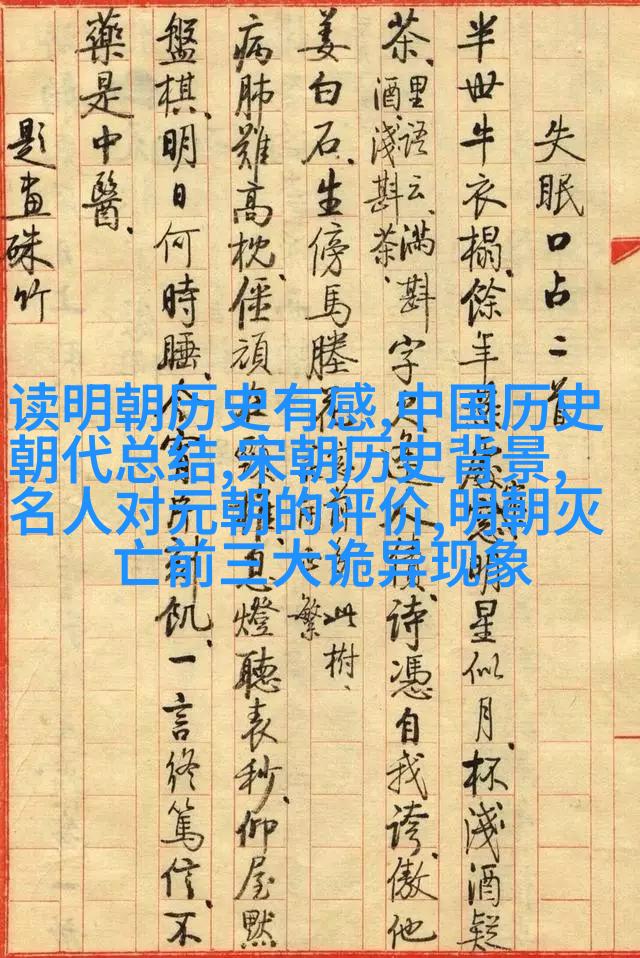 失眠口占二首
半世牛衣榻、餘年 明星似月、杯淺酒疑
茶、里語云、滿斟酒淺斟茶、字 詩憑自我誇、傲他
姜白石、生傍馬塍花、此樹、繁
病肺難高枕、僵頑 息燈聽表秒、仰屋默
盤棋、明日何時睡、今宵 飢、一言終篤信、不
藥是中醫、
題畫硃竹
读明朝历史有感,中国历史
朝代总结,宋朝历史背景,
名人对元朝的评价,明朝灭
亡前三大诡异现象